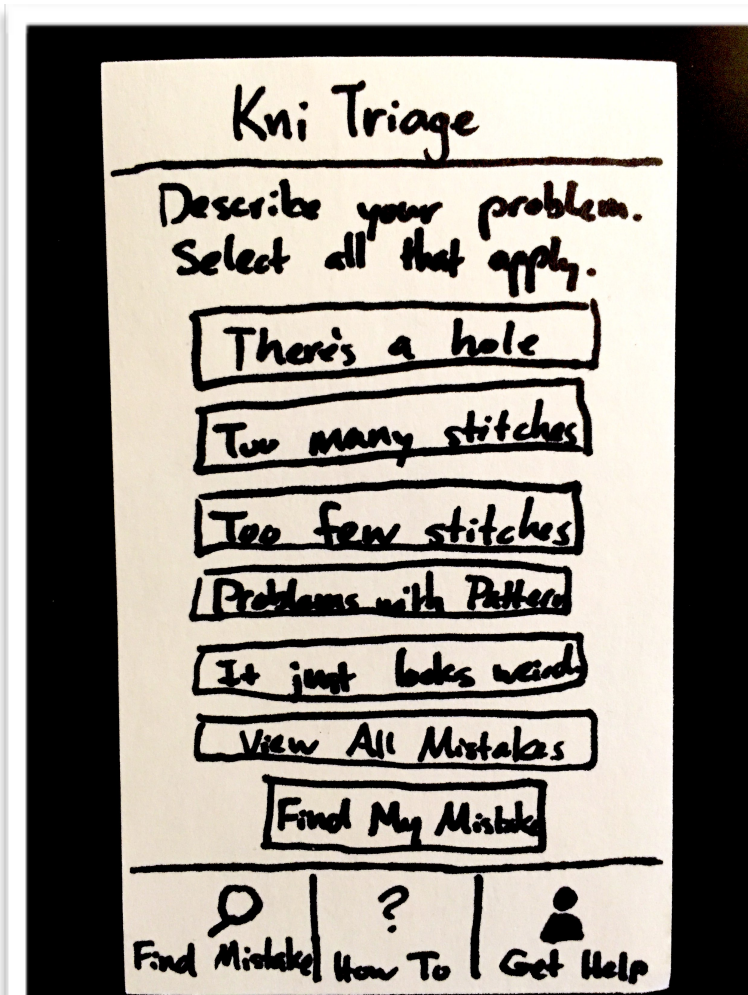 Kni Triage
Describe your problem.
Select all that apply.
There's a hole
Too many stitches
Too few stitches
Problems with Pattern
It just looks weird
View All Mistakes
Find My Mistake
?
Find Mistake How To Get Help